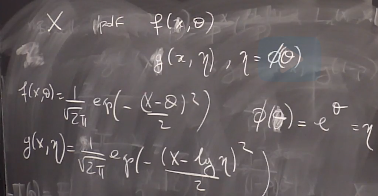 X pdf f(x,θ)
g(x,η), η = φ(θ)
f(x,θ) = 1/√2π exp(-(x-θ)²/2)
φ(θ) = e^θ = η
g(x,η) = 1/√2π exp(-(x-lg η)²/2)